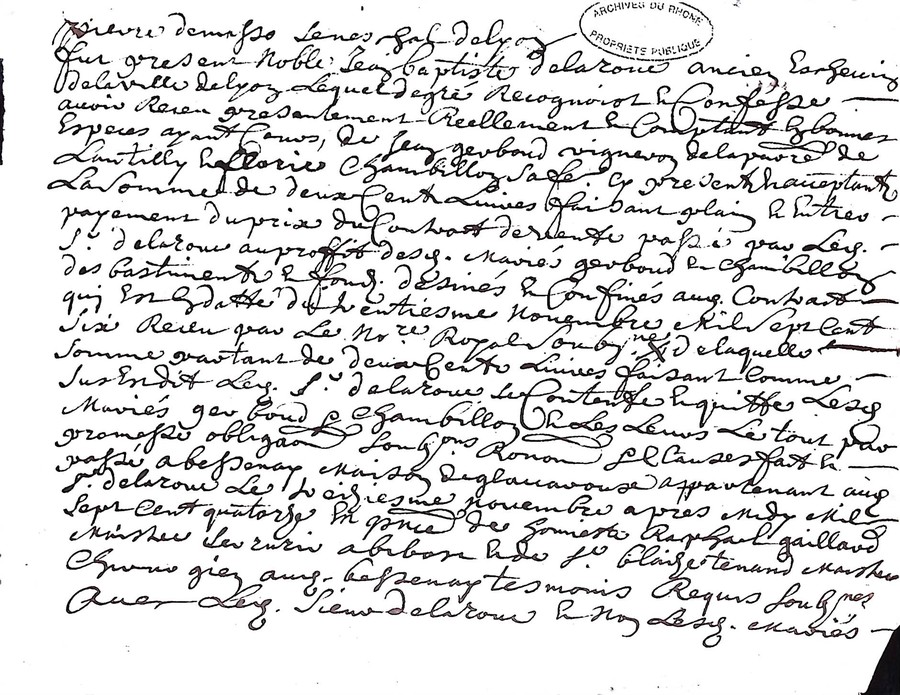 Pierre demasso seneschal delyon
ARCHIVES DU RHONE
PROPRIETE PUBLIQUE
fut present Noble Jean baptiste delaroue ancien Eschevin
delaville delyon Lequel degré Recognoist & Confesse
avoir Receu presentement Reellement & Comptant En bonnes
Especes ayant Cours, de Jean gerboud vigneron delaparre de
Lantilly & florie Chambillon sa fe. Cy present & acceptant
La somme de deux Cent Livres faisant plain & Entier
payement du prix du Contract devente passé par Led.
Sr. delaroue au proffit desd. Mariés gerboud & Chambillon
des bastiments & fond. desinés & Confinés aud. Contract
qui Est En datte du ventiesme Novembre Mil Sept Cent
Six Receu par Le Nore. Royal Soubne. delaquelle
Somme partant de deux Cents Livres faisant Comme
Sus Est dit Led. Sr. delaroue se Contente & quitte Lesd
Mariés gerboud & Chambillon & Les Leurs Le tout par
promesse obligaon Soubons Renon & Clauses fait &
passé a bessenay Maison de appartenant aud
Sr. delaroue Le Novembre apres Midy Mil
Sept Cent quatorze En pnce de Raphael gaillard
Maistre a & de St. blaise tenand Maistre
Chirurgien aud. bessenay tesmoins Requis Soubnes
Avec Led. Sieur delaroue & Non Lesd. Mariés